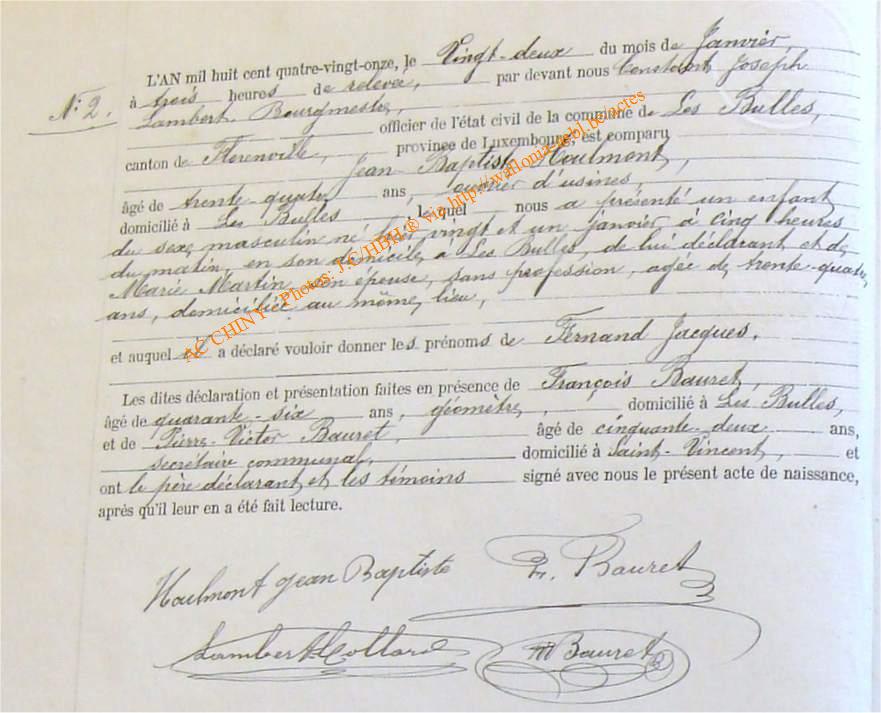 N° 2.
L'AN mil huit cent quatre-vingt-onze, le Vingt-deux du mois de Janvier,
à trois heures de relevée, par devant nous Constant Joseph
Lambert, Bourgmestre,
officier de l'état civil de la commune de Les Bulles,
canton de Florenville, province de Luxembourg, est comparu
Jean Baptiste Houlmont,
âgé de trente-quatre ans, ouvrier d'usines
domicilié à Les Bulles, lequel nous a présenté un enfant
du sexe masculin né hier vingt et un janvier à cinq heures
du matin, en son domicile, à Les Bulles, de lui déclarant et de
Marie Martin, son épouse, sans profession, agée de trente-quatre
ans, domiciliée au même lieu,
et auquel il a déclaré vouloir donner les prénoms de Fernand Jacques.
Les dites déclaration et présentation faites en présence de François Bauret,
âgé de quarante-six ans, géomètre, domicilié à Les Bulles,
et de Pierre-Victor Bauret, âgé de cinquante-deux ans,
secrétaire communal, domicilié à Saint-Vincent, et
ont le père déclarant et les témoins signé avec nous le présent acte de naissance,
après qu'il leur en a été fait lecture.
Houlmont Jean Baptiste
Fr. Bauret
Lambert-Collard
Bauret
AC CHINY - Photos: J.C/HBH ® via http://wallonia.mbl.be/actes